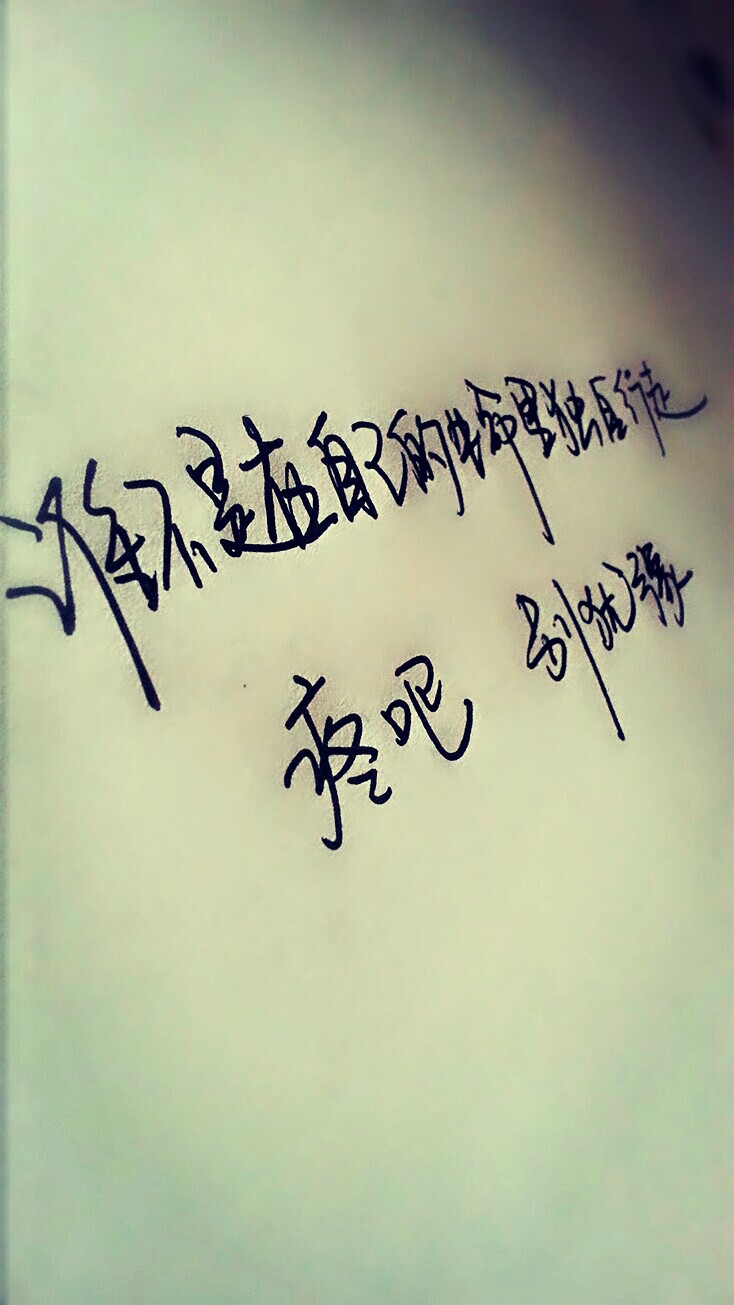 谁不是在自己的生命里独自行走
疼吧 别犹豫